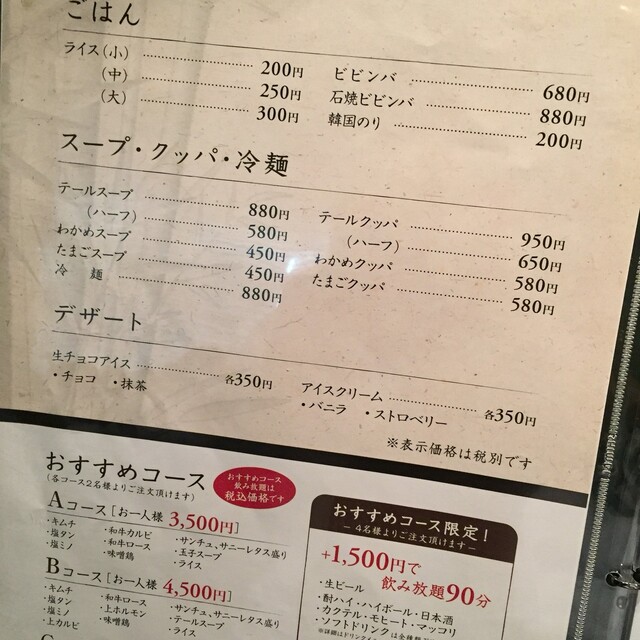 ごはん
ライス(小) 200円
(中) 250円
(大) 300円
ビビンバ 680円
石焼ビビンバ 880円
韓国のり 200円
スープ・クッパ・冷麺
テールスープ 880円
(ハーフ) 580円
わかめスープ 450円
たまごスープ 450円
冷 麺 880円
テールクッパ 950円
(ハーフ) 650円
わかめクッパ 580円
たまごクッパ 580円
デザート
生チョコアイス 各350円
・チョコ ・抹茶
アイスクリーム 各350円
・バニラ ・ストロベリー
※表示価格は税別です
おすすめコース
(各コース2名様よりご注文頂けます)
おすすめコース
飲み放題は
税込価格です
Aコース[お一人様 3,500円]
・キムチ ・和牛カルビ ・サンチュ、サニーレタス盛り
・塩タン ・和牛ロース ・玉子スープ
・塩ミノ ・味噌鶏 ・ライス
Bコース[お一人様 4,500円]
・キムチ ・和牛ロース ・サンチュ、サニーレタス盛り
・塩タン ・上ホルモン ・テールスープ
・塩ミノ ・味噌鶏 ・ライス
・上カルビ
おすすめコース限定!
─ 4名様よりご注文頂けます ─
+1,500円で
飲み放題90分
・生ビール
・酎ハイ・ハイボール・日本酒
・カクテル・モヒート・マッコリ
・ソフトドリンク